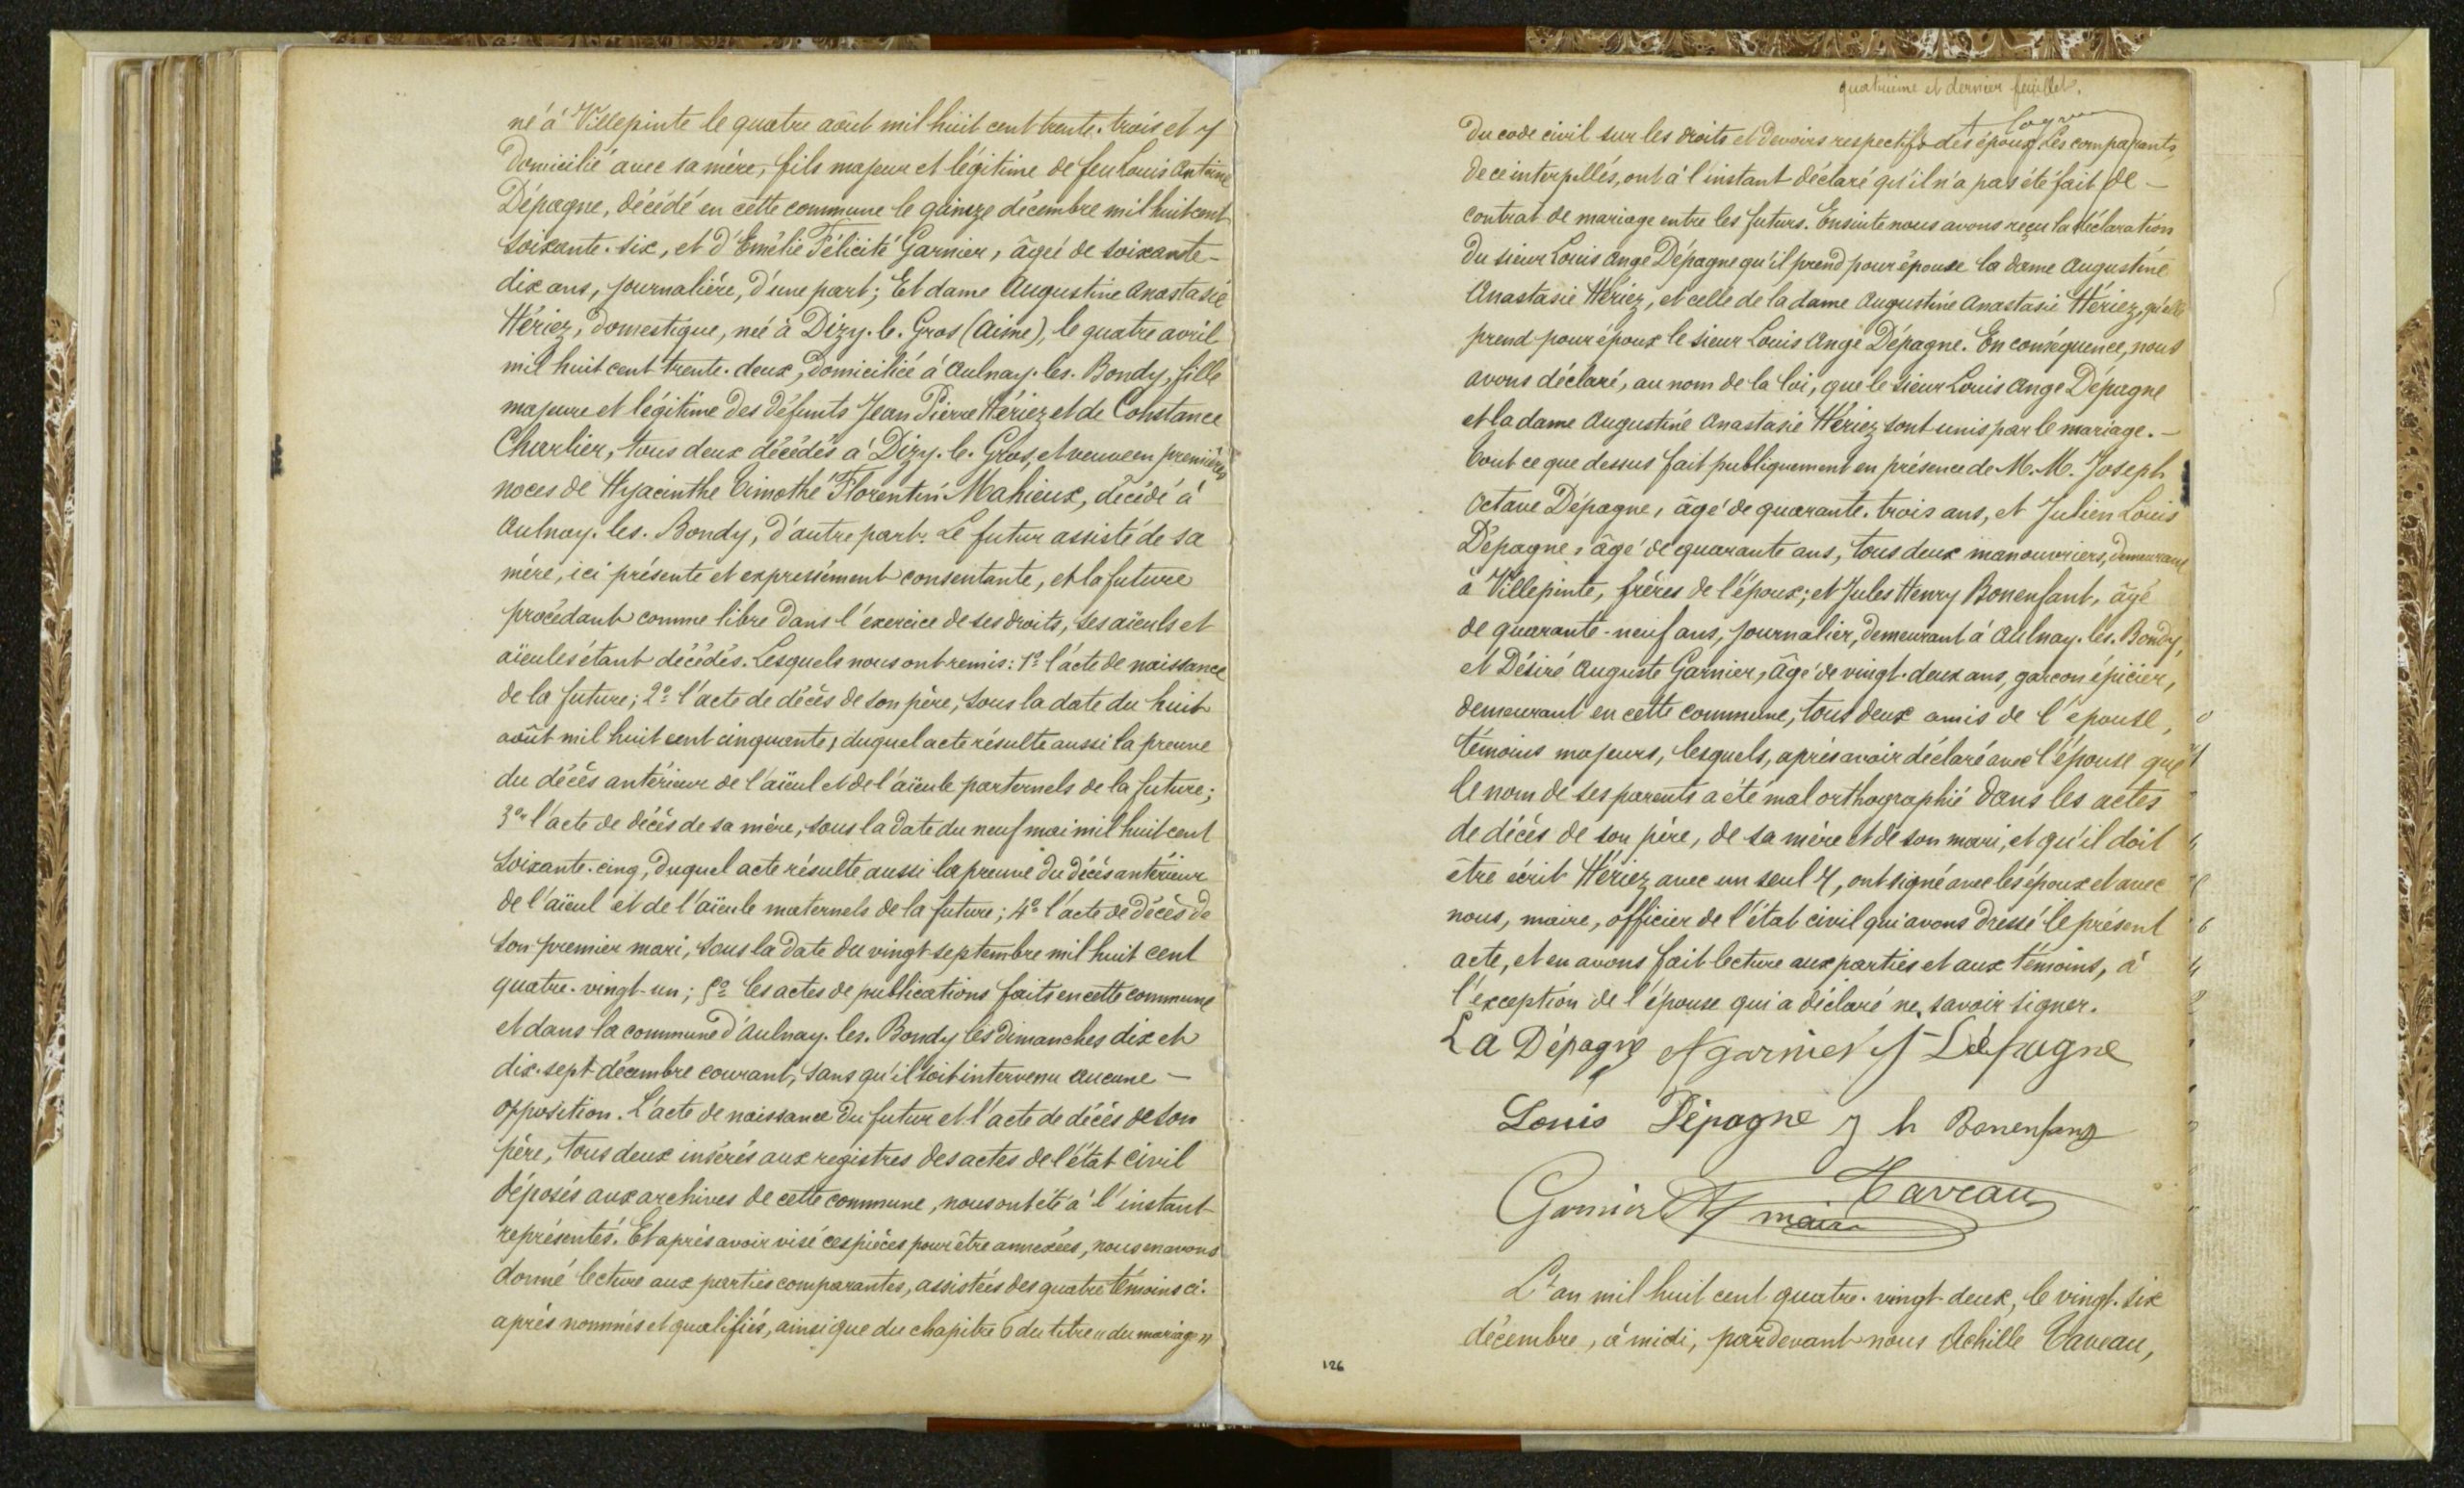 né à Villepinte le quatre août mil huit cent trente-trois et y
domicilié avec sa mère, fils majeur et légitime de feu Louis Antoine
Dépagne, décédé en cette commune le quinze décembre mil huit cent
soixante-six, et d'Emélie Félicité Garnier, âgée de soixante-
dix ans, journalière, d'une part; Et dame Augustine Anastasie
Hériez, domestique, née à Dizy-le-Gros (Aisne), le quatre avril
mil huit cent trente-deux, domiciliée à Aulnay-les-Bondy, fille
majeure et légitime des défunts Jean Pierre Hériez et de Constance
Charlier, tous deux décédés à Dizy-le-Gros, et veuve en premières
noces de Hyacinthe Timothé Florentin Mahieux, décédé à
Aulnay-les-Bondy, d'autre part. Le futur assisté de sa
mère, ici présente et expressément consentante, et la future
procédant comme libre dans l'exercice de ses droits, ses aïeuls et
aïeules étant décédés. Lesquels nous ont remis: 1º l'acte de naissance
de la future; 2º l'acte de décès de son père, sous la date du huit
août mil huit cent cinquante, duquel acte résulte aussi la preuve
du décès antérieur de l'aïeul et de l'aïeule parternels de la future;
3º l'acte de décès de sa mère, sous la date du neuf mai mil huit cent
soixante-cinq, duquel acte résulte aussi la preuve du décès antérieur
de l'aïeul et de l'aïeule maternels de la future; 4º l'acte de décès de
son premier mari, sous la date du vingt septembre mil huit cent
quatre-vingt-un; 5º les actes de publications faits en cette commune
et dans la commune d'Aulnay-les-Bondy les dimanches dix et
dix-sept décembre courant, sans qu'il soit intervenu aucune –
opposition. L'acte de naissance du futur et l'acte de décès de son
père, tous deux insérés aux registres des actes de l'état civil
déposés aux archives de cette commune, nous ont été à l'instant
représentés. Et après avoir visé ces pièces pour être annexées, nous en avons
donné lecture aux parties comparantes, assistées des quatre témoins ci-
après nommés et qualifiés, ainsi que du chapitre 6 du titre « du mariage »
quatrième et dernier feuillet.
du code civil sur les droits et devoirs respectifs des époux. Les comparants,
de ce interpellés, ont à l'instant déclaré qu'il n'a pas été fait de –
contrat de mariage entre les futurs. Ensuite nous avons reçu la déclaration
du sieur Louis Ange Dépagne qu'il prend pour épouse la dame Augustine
Anastasie Hériez, et celle de la dame Augustine Anastasie Hériez, qu'elle
prend pour époux le sieur Louis Ange Dépagne. En conséquence, nous
avons déclaré, au nom de la loi, que le sieur Louis Ange Dépagne
et la dame Augustine Anastasie Hériez sont unis par le mariage. –
Tout ce que dessus fait publiquement en présence de M. M. Joseph
Octave Dépagne, âgé de quarante-trois ans, et Julien Louis
Dépagne, âgé de quarante ans, tous deux manouvriers, demeurant
à Villepinte, frères de l'époux; et Jules Henry Bonenfant, âgé
de quarante-neuf ans, journalier, demeurant à Aulnay-les-Bondy,
et Désiré Auguste Garnier, âgé de vingt-deux ans, garcon épicier,
demeurant en cette commune, tous deux amis de l'épouse,
témoins majeurs, lesquels, après avoir déclaré avec l'épouse que
le nom de ses parents a été mal orthographié dans les actes
de décès de son père, de sa mère et de son mari, et qu'il doit
être écrit Hériez avec un seul r, ont signé avec les époux et avec
nous, maire, officier de l'état civil qui avons dressé le présent
acte, et en avons fait lecture aux parties et aux témoins, à
l'exception de l'épouse qui a déclaré ne savoir signer.
La Dépagne garnier Dépagne
Louis Dépagne j h Bonenfant
Garnier Taveau
maire
L'an mil huit cent quatre-vingt-deux, le vingt-six
décembre, à midi, pardevant nous Achille Taveau,
126